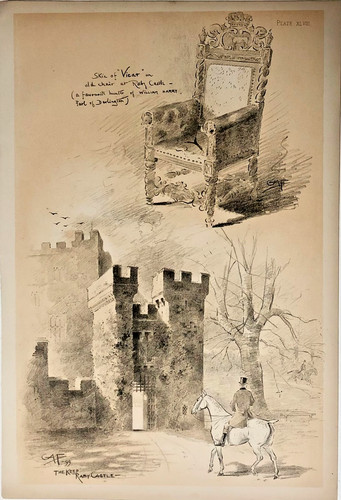 PLATE XLIII.
Skin of "Vicar" on
old chair at Raby Castle —
(a favourite hunter of William Harry
Earl of Darlington)
GAF
GAF
THE KEEP
RABY CASTLE —